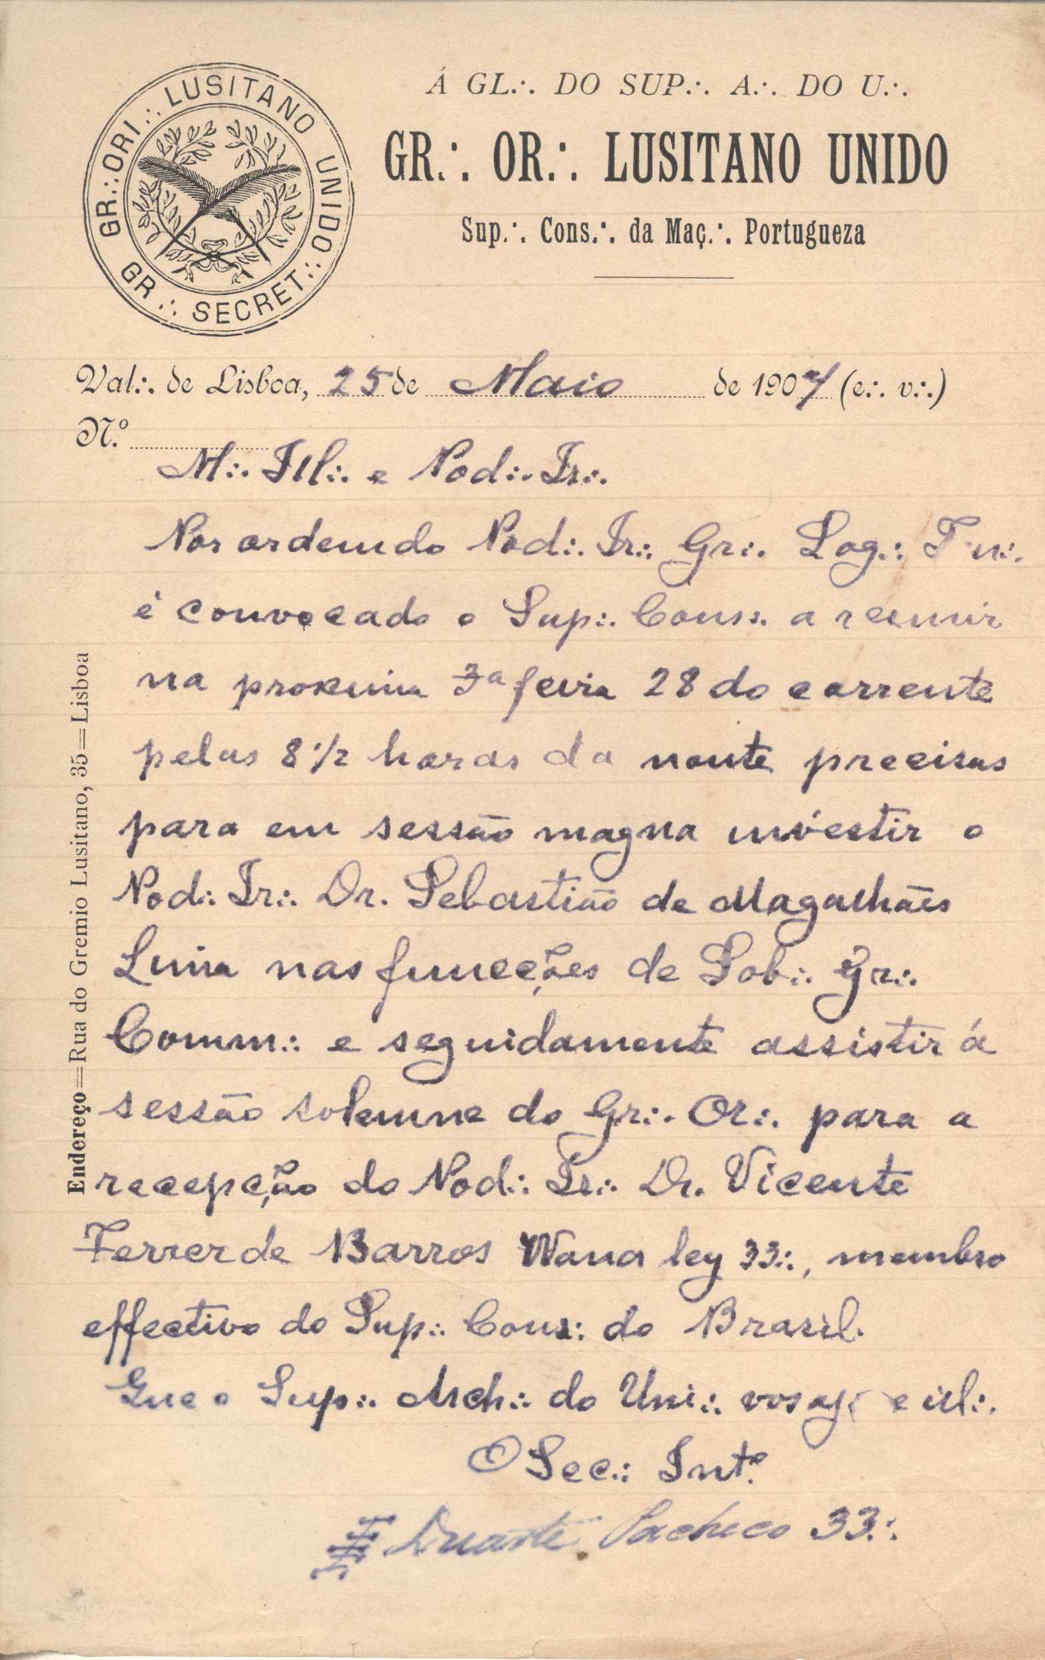 GR.·. ORI.·. LUSITANO UNIDO.·.
GR.·. SECRET.·.
Á GL.·. DO SUP.·. A.·. DO U.·.
GR.·. OR.·. LUSITANO UNIDO
Sup.·. Cons.·. da Maç.·. Portugueza
Val.·. de Lisboa, 25 de Maio de 1907 (e.·. v.·.)
N.º
M.·. Ill.·. e Pod.·. Ir.·.
Por ordem do Pod.·. Ir.·. Gr.·. Log.·. T n.·.
é convocado o Sup.·. Cons.·. a reunir
na proxima 3ª feira 28 do corrente
pelas 8 1/2 horas da noute precisas
para em sessão magna investir o
Pod.·. Ir.·. Dr. Sebastião de Magalhães
Lima nas funcções de Sob.·. Gr.·.
Comm.·. e seguidamente assistir á
sessão solemne do Gr.·. Or.·. para a
recepção do Pod.·. Ir.·. Dr. Vicente
Ferrer de Barros Wanderley 33.·., membro
effectivo do Sup.·. Cons.·. do Brasil.
Que o Sup.·. Arch.·. do Uni.·. vos aj e ill.·.
O Sec.·. Intº.
Duarte Pacheco 33.·.
Endereço=Rua do Gremio Lusitano, 35=Lisboa